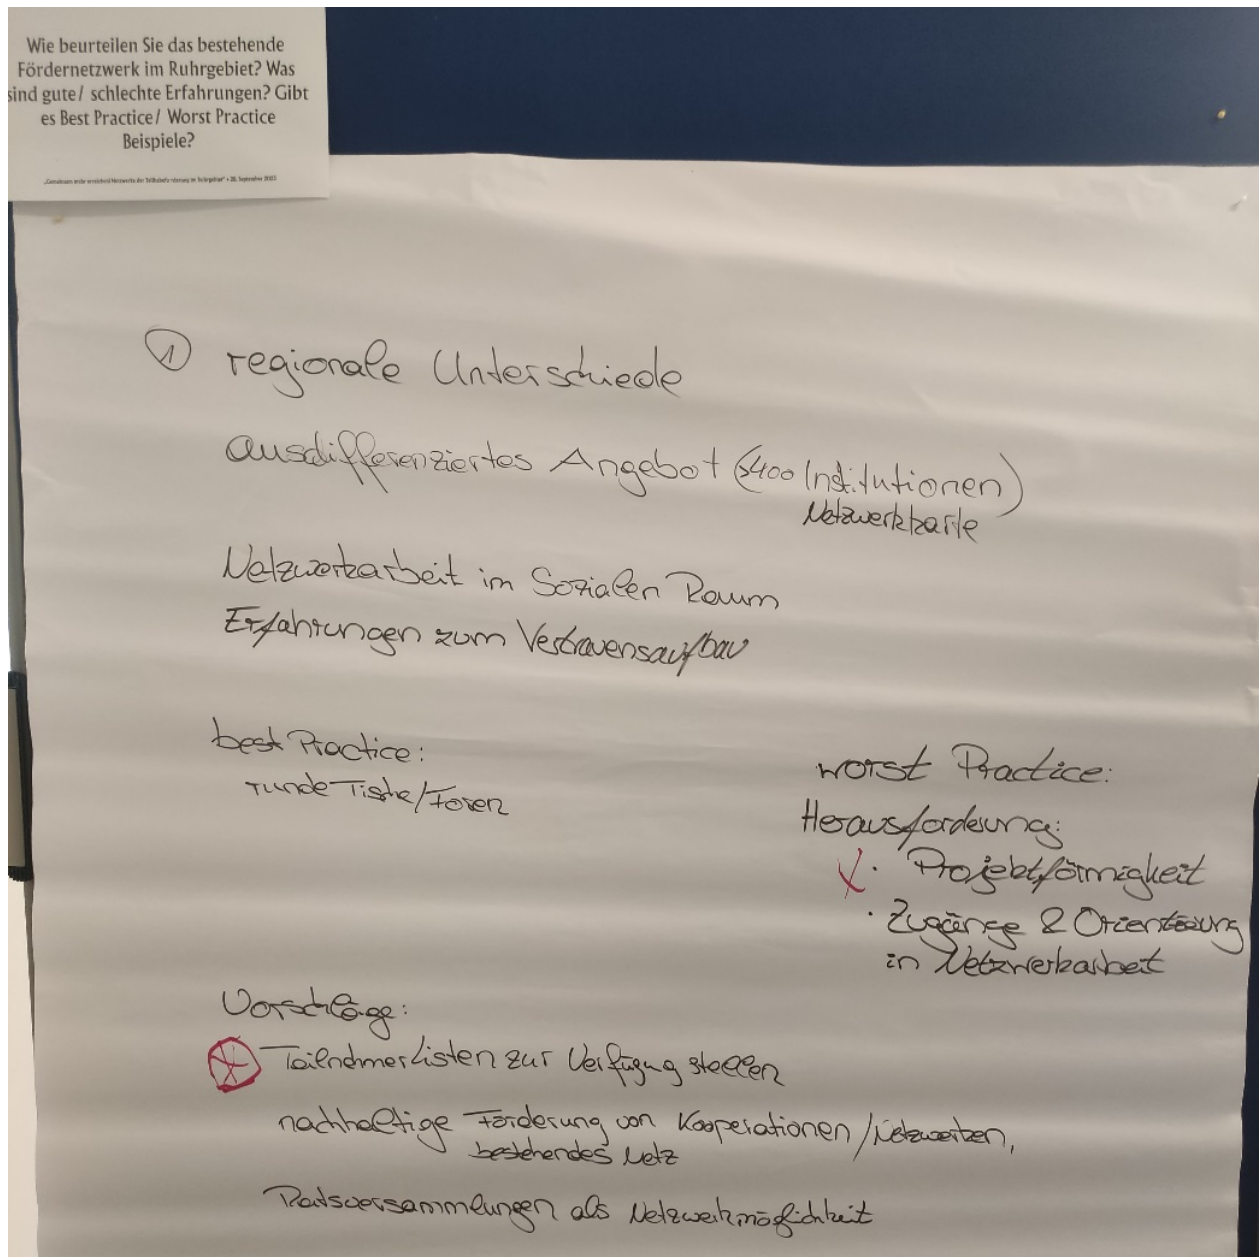 Wie beurteilen Sie das bestehende
Fördernetzwerk im Ruhrgebiet? Was
sind gute/ schlechte Erfahrungen? Gibt
es Best Practice/ Worst Practice
Beispiele?
„Gemeinsam mehr erreichen! Netzwerke der Teilhabeförderung im Ruhrgebiet“ • 28. September 2023
① regionale Unterschiede
ausdifferenziertes Angebot (>400 Institutionen)
Netzwerkkarte
Netzwerkarbeit im Sozialen Raum
Erfahrungen zum Vertrauensaufbau
best Practice:
runde Tische/Foren
worst Practice:
Herausforderung:
· Projektförmigkeit
· Zugänge & Orientierung
in Netzwerkarbeit
Vorschläge:
Teilnehmerlisten zur Verfügung stellen
nachhaltige Förderung von Kooperationen/Netzwerken,
bestehendes Netz
Ratsversammlungen als Netzwerkmöglichkeit